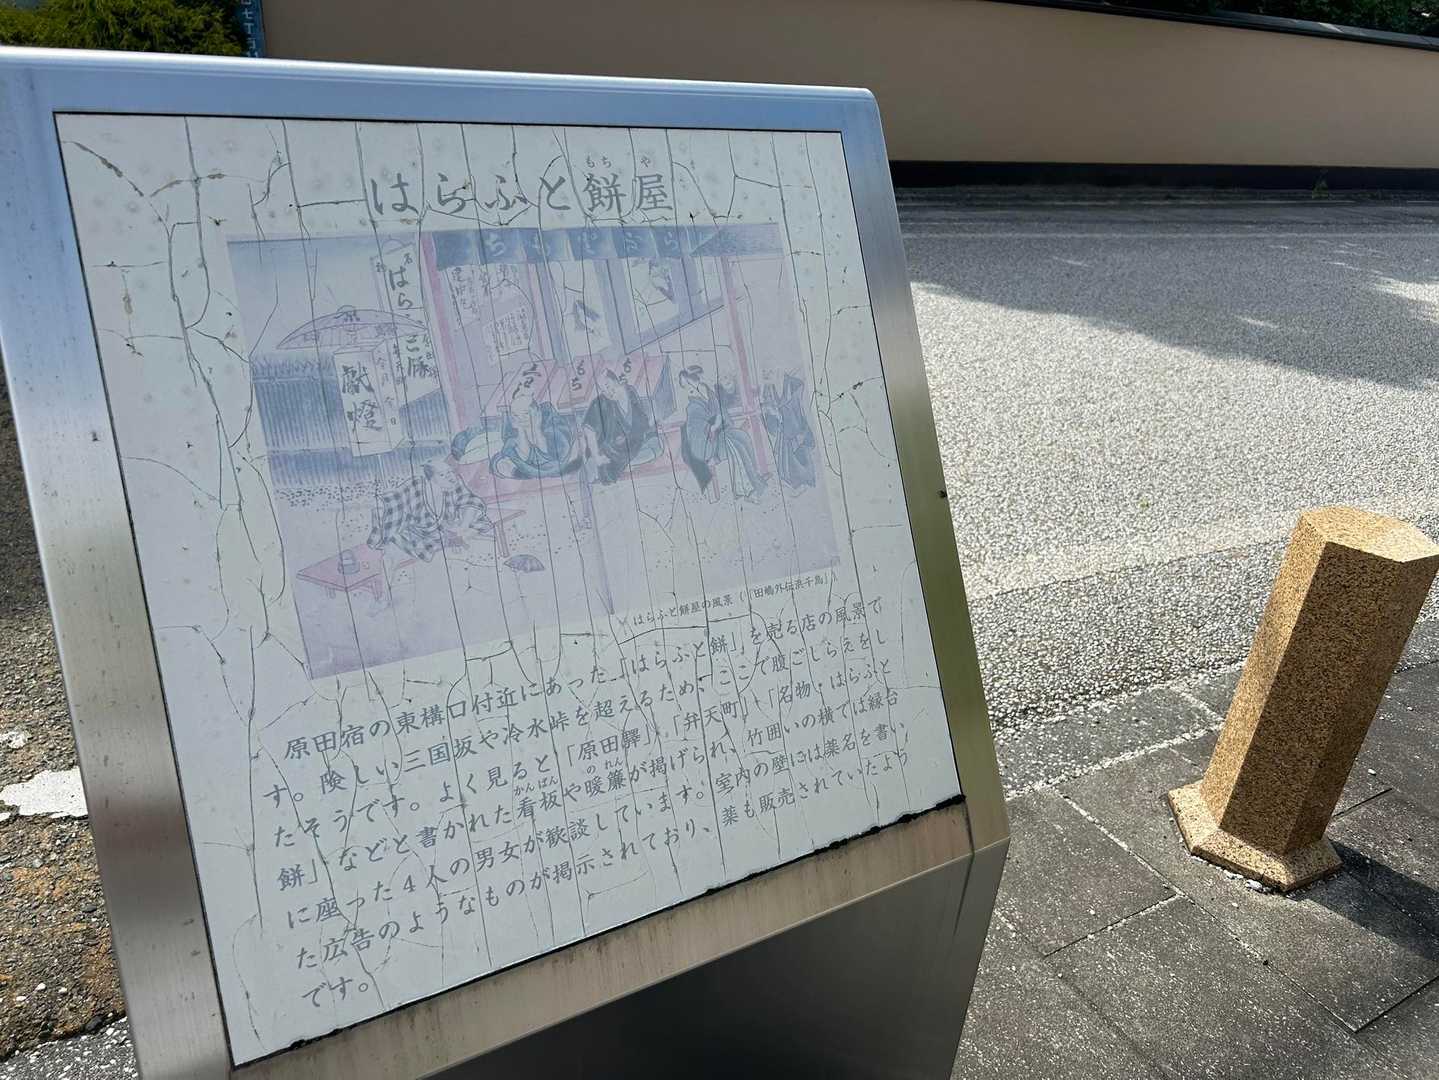 もちや
はらふと餅屋
はら
献燈
もち
もち
はらふと餅屋の風景(「田嶋外伝浜千鳥」)
原田宿の東構口付近にあった「はらふと餅」を売る店の風景で
す。険しい三国坂や冷水峠を超えるため、ここで腹ごしらえをし
たそうです。よく見ると「原田驛」、「弁天町」、「名物・はらふと
餅」などと書かれた看板や暖簾が掲げられ、竹囲いの横では縁台
かんばん
のれん
に座った4人の男女が歓談しています。室内の壁には薬名を書い
た広告のようなものが掲示されており、薬も販売されていたよう
です。